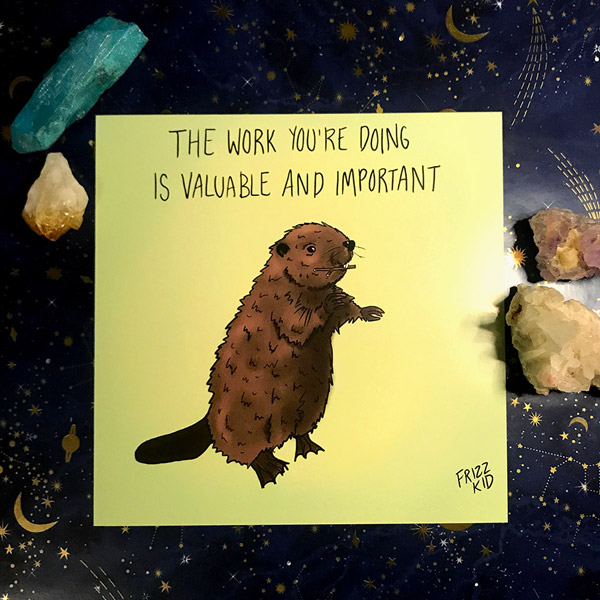 THE WORK YOU'RE DOING
IS VALUABLE AND IMPORTANT
FRIZZ
KID